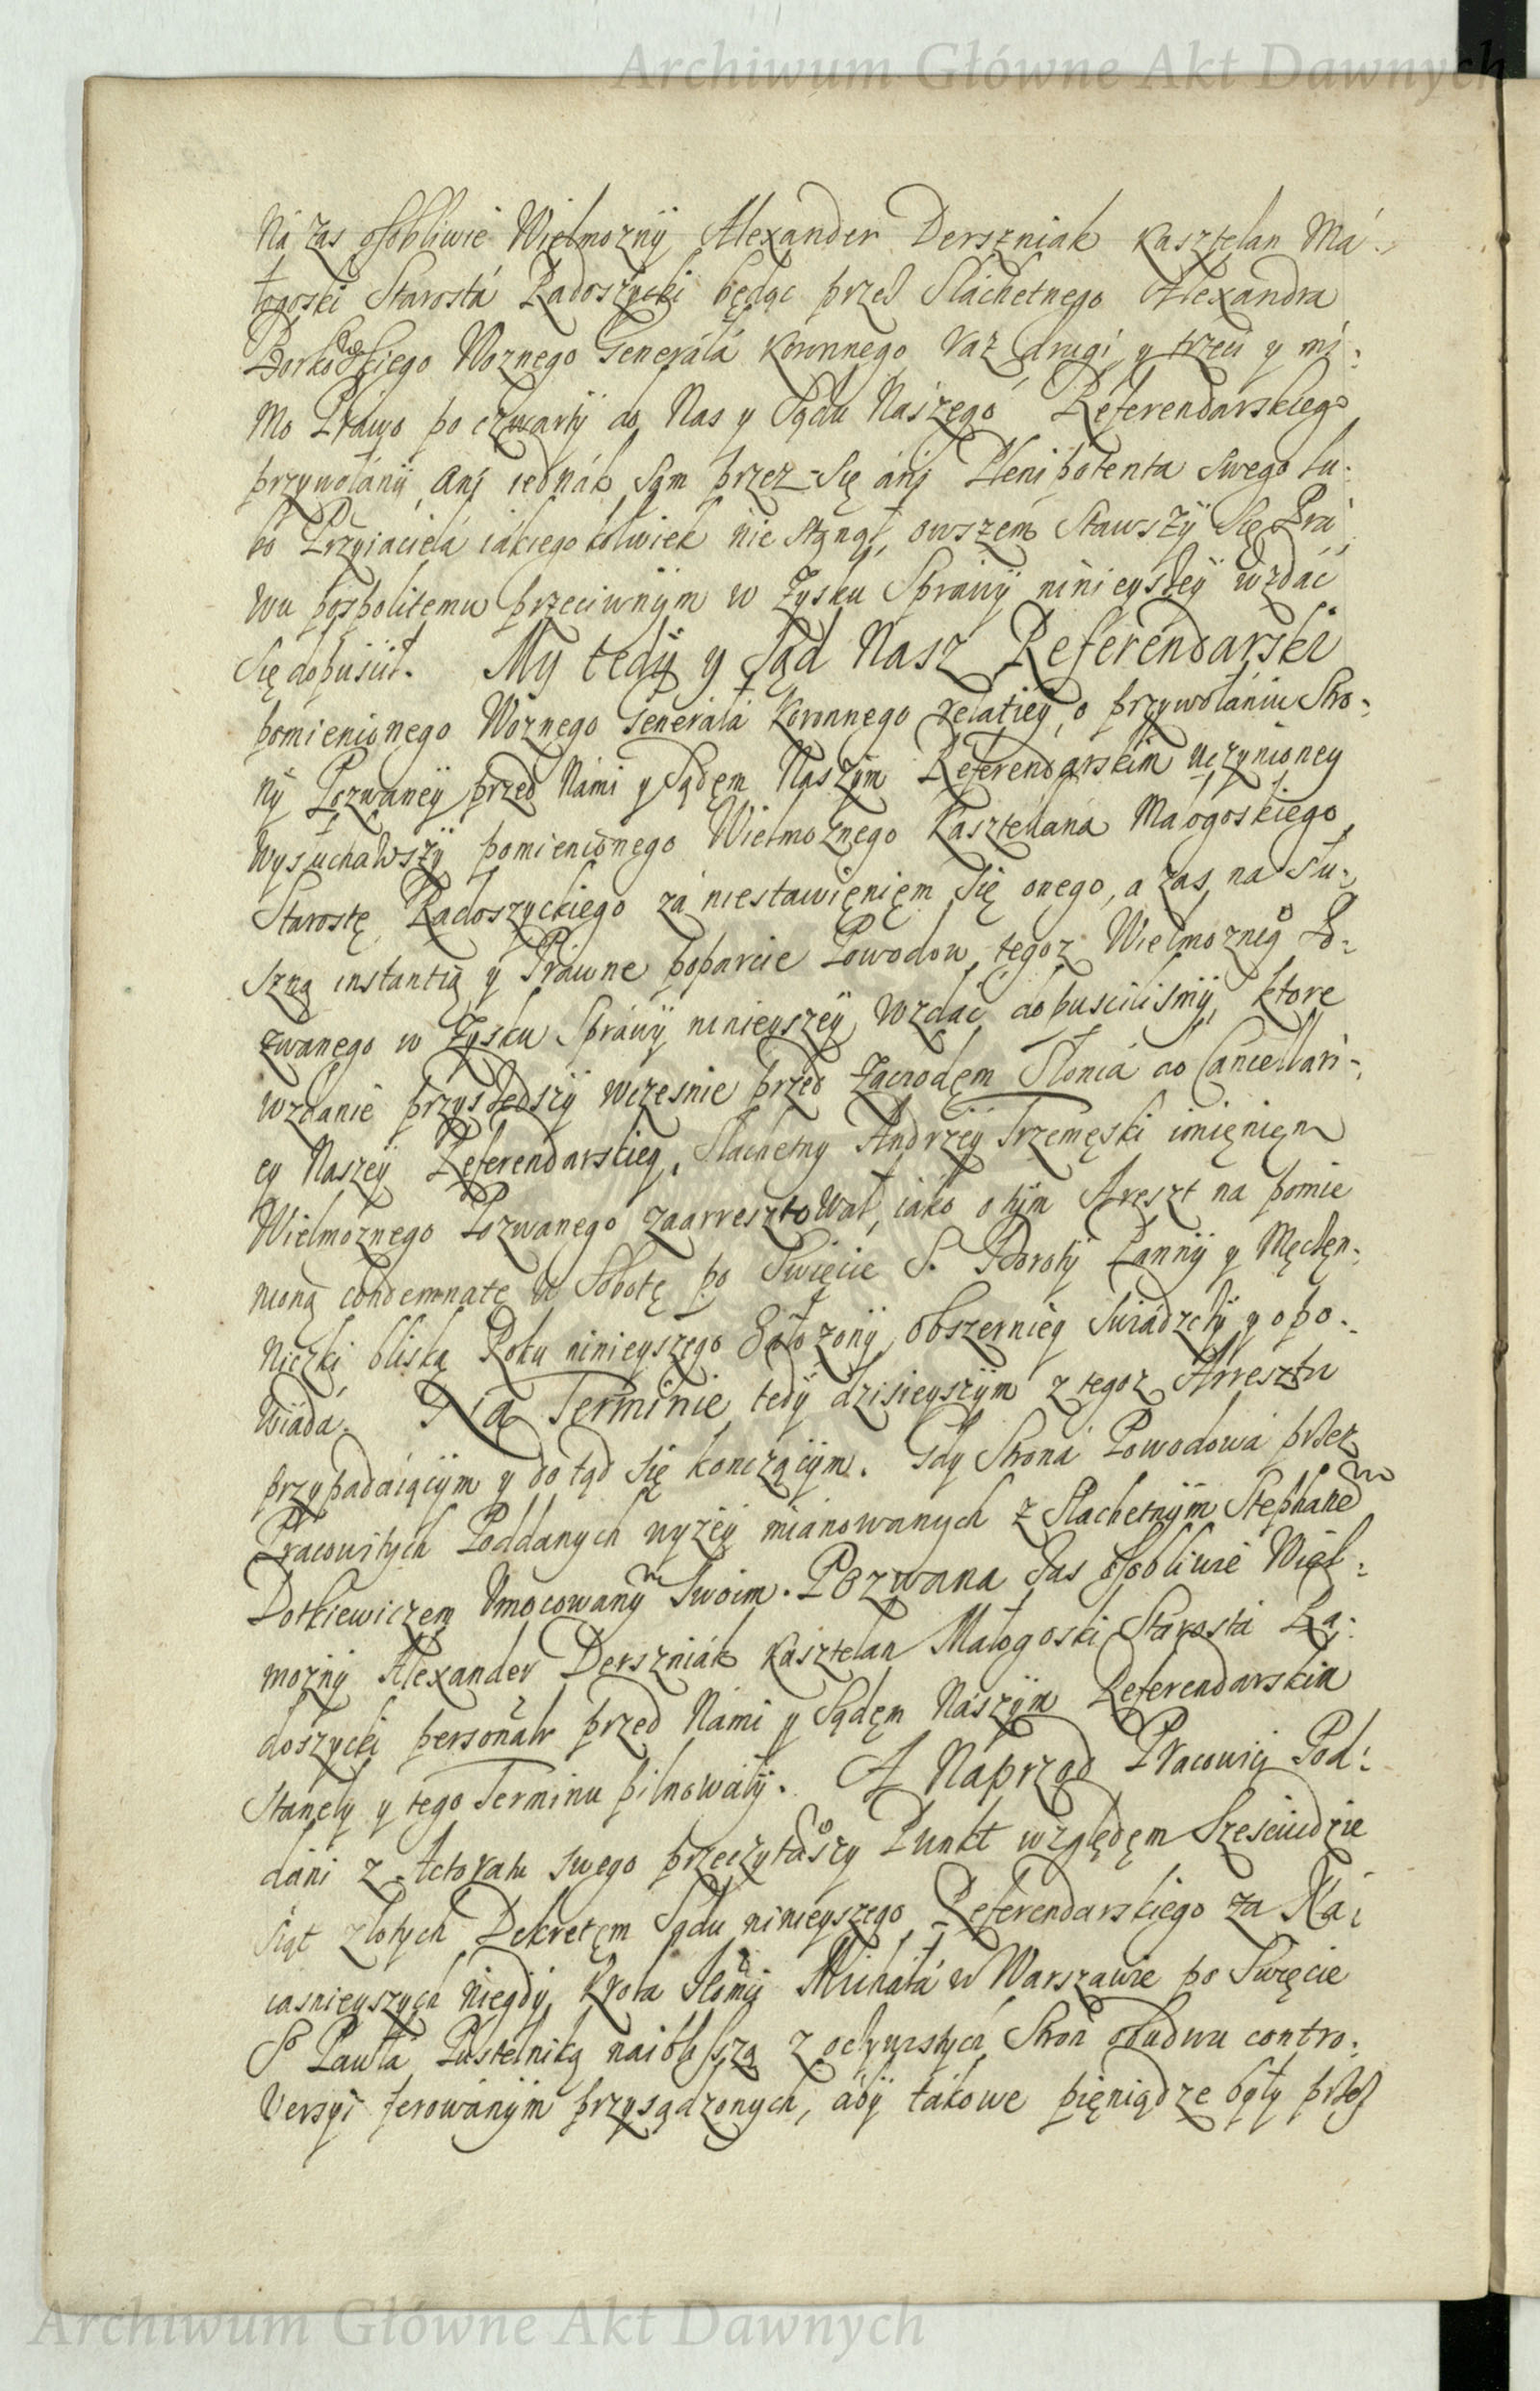 Archiwum Główne Akt Dawnych
Ná zas osobliwie Wielmozny Alexander Derszniak Kasztelan Má-
łogoski Starostá Radoszycki będąc przes Slachetnego Alexandra
Borkowskiego Woznego Generałá Koronnego raz drugi y trzeci y mi-
mo Prawo po czwarty do Nas y Sądu Naszego Referendarskiego
przywołány ani iednák sąm przez się áni Plenipotenta swego lu-
bo Przyiacielá iákiegokolwiek nie stąnął, owszem stawszy się Prá-
wu pospolitemu przeciwnym w Zysku Sprawy ninieyszey wzdác
się dopuscił. My tedy y Sąd Nasz Referendarski
pomienionego Woznego Generałá Koronnego relatiey, o przywołániu Stro-
ny Pozwaney przed Námi y Sądem Naszym Referendarskim uczynioney
wysłuchawszy pomienionego Wielmoznego Kasztelaná Małogoskiego
Starostę Radoszyckiego zá niestawięnięm się onego, a zas na słu-
szną instantią y Práwne poparcie Powodow tegoz Wielmozneg° Po-
zwanego w Zysku Spráwy ninieyszey wzdác dopuscilismy, ktore
wzdanie przyszedszy wczesnie przed Zachodem Słoncá do Cancellari-
ey Naszey Referendarskiey, Slachetny Andrzey Trzemęski imięnięm
Wielmoznego Pozwanego zaarresztował, iáko o tym Areszt na pomie
nioną condemnatę w Sobotę po Swięcie S. Doroty Panny y Męczęn-
niczki bliską Roku ninieyszego załozony, obszerniey swiádczy y opo-
wiáda. Na Terminie tedy dzisieyszym z tegoz Arresztu
przypadáiącym y do tąd się konczącym. Gdy Stroná Powodowa przez
Pracowitych Poddanych wyzey mianowanych z Slachetnym Stephanem
Dotkiewiczem Umocowanym swoim. Pozwana zas osobliwie Wiel-
mozny Alexander Derszniák Kásztelan Małogoski Stárostá Ra-
doszycki personalr przed Námi y Sądęm Naszym Referendarskim
stanęły y tego Terminu pilnowáły. A Naprzod Pracowici Pod-
dáni z Actoratu swego przeczytawszy Punkt względęm Szesciudzie
siąt złotych Dekretęm Sądu ninieyszego Referendarskiego za Ná-
iasnieyszych niegdy Krola Jęmci Michałá w Warszawie po Swięcie
S° Pawłá Pustelniká naiblisszą z oczywistych Stron obudwu contro-
versyi ferowánym przysądzonych, áby tákowe pięniądze były przes
Archiwum Główne Akt Dawnych